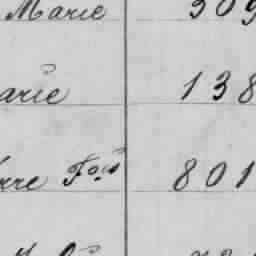 Marie 309
arie 138
rre Fois 801